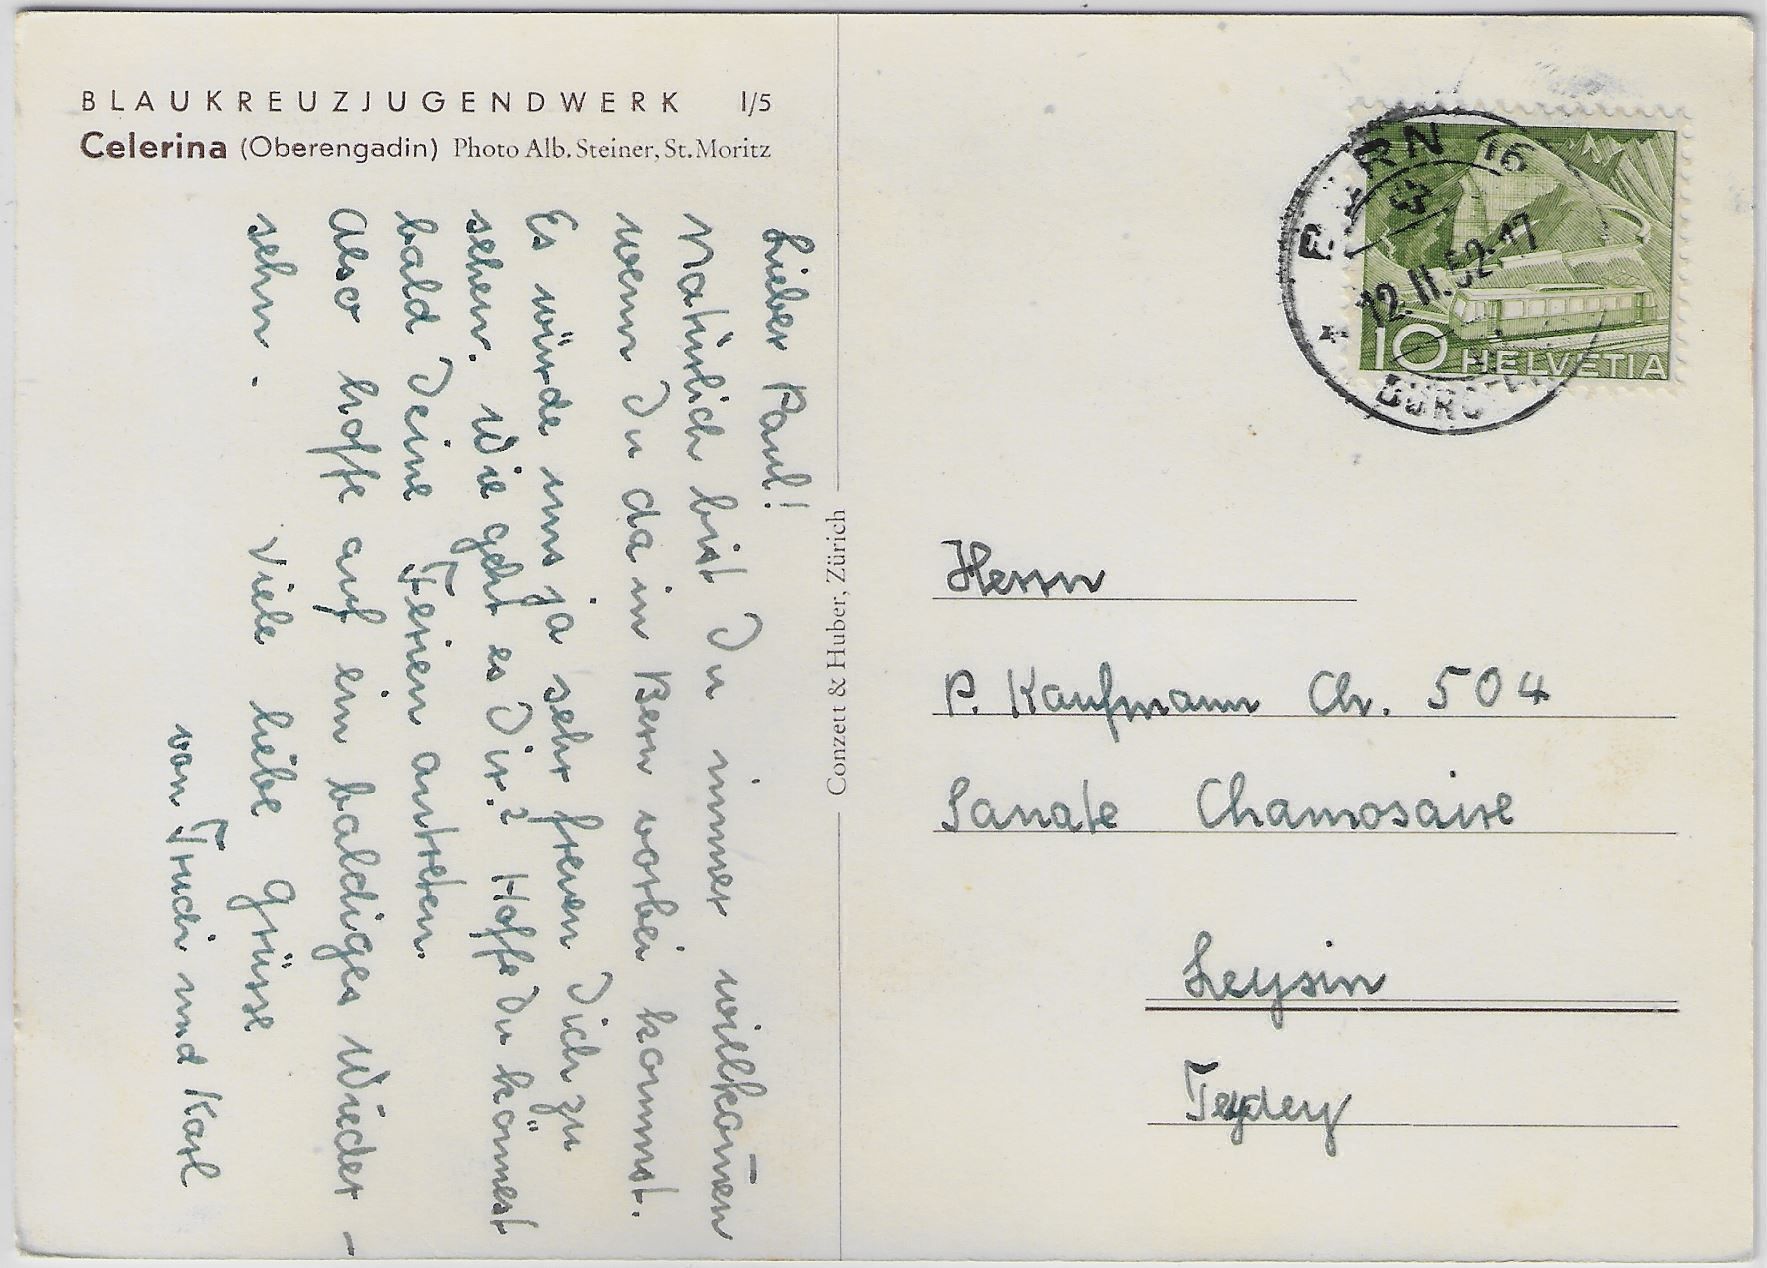 BLAUKREUZJUGENDWERK I/5
Celerina (Oberengadin) Photo Alb. Steiner, St. Moritz
Lieber Paul!
Natürlich bist Du immer willkom̄en
wenn Du da in Bern vorbei kommst.
Es würde uns ja sehr freuen Dich zu
sehen. Wie geht es Dir? Hoffe Du könnest
bald Deine Ferien antreten.
Also hoffe auf ein baldiges Wieder-
sehn. Viele liebe Grüsse
von Trudi und Karl
Conzett & Huber, Zürich
BERN 16
12.II.52.-17
10 HELVETIA
Herrn
P. Kaufmann Ch. 504
Sanato Chamosaire
Leysin
Feydey